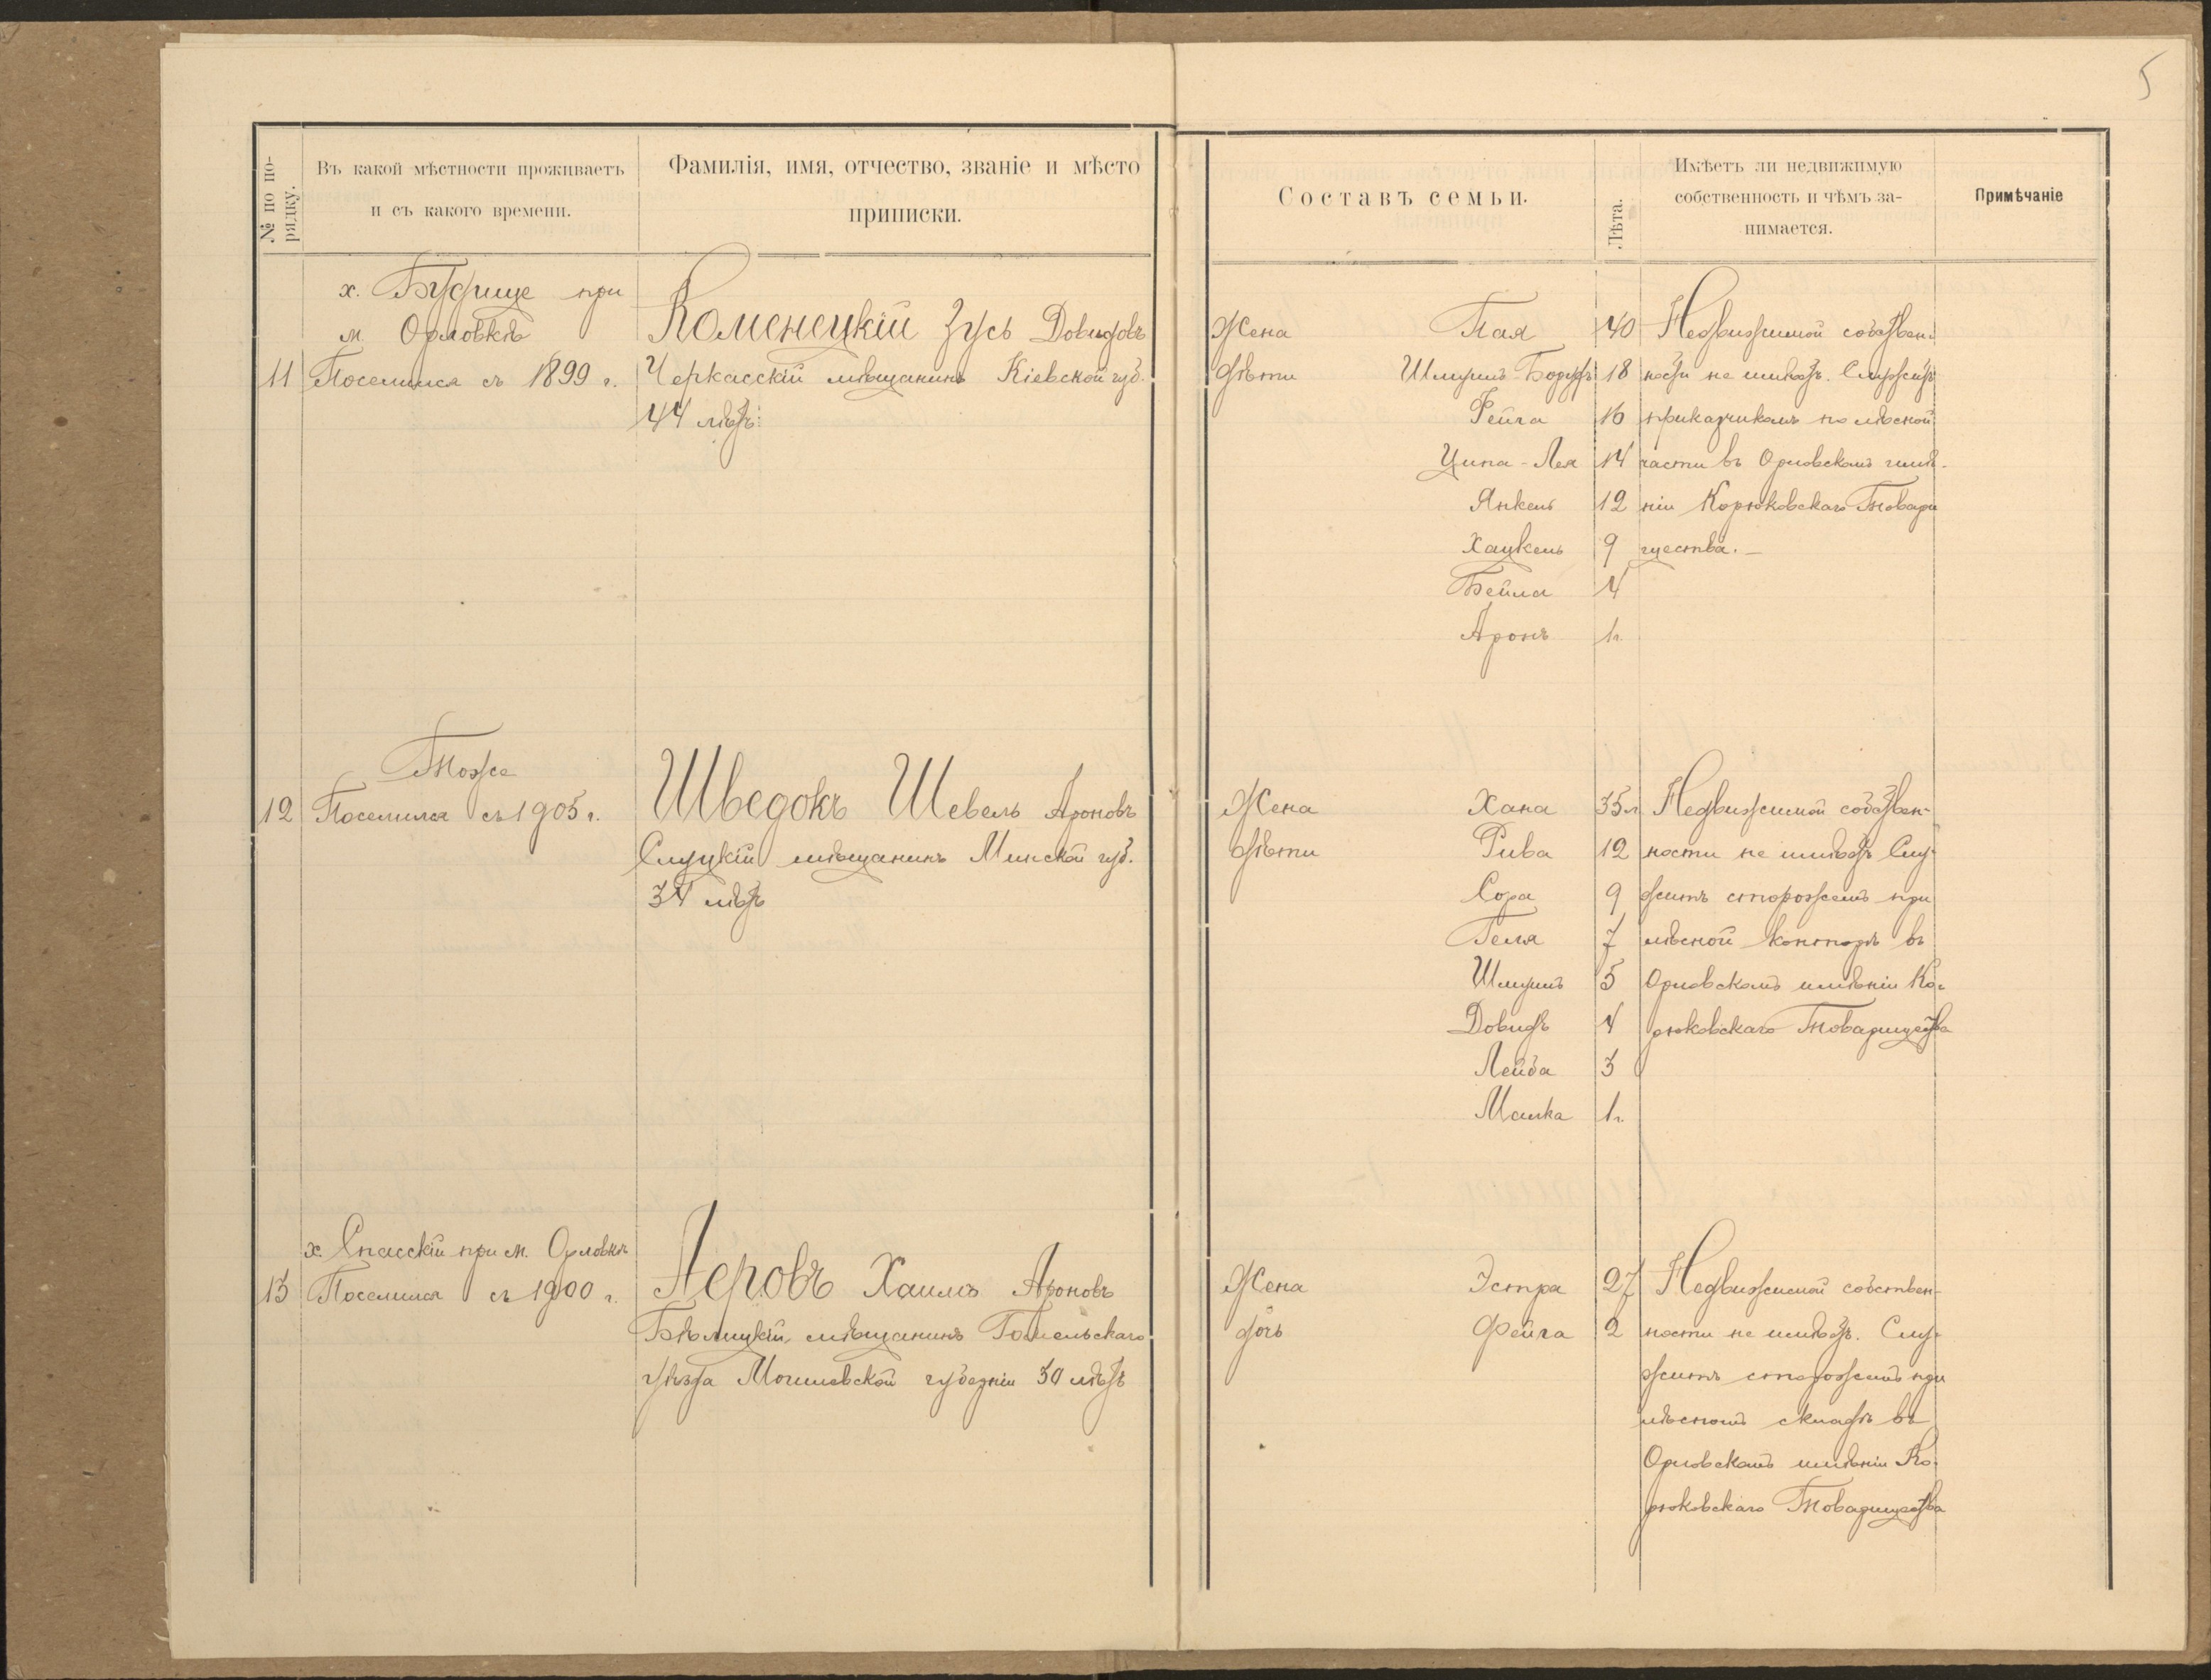 5
№ по по-
рядку.
Въ какой мѣстности проживаетъ
и съ какого времени.
Фамилія, имя, отчество, званіе и мѣсто
приписки.
Составъ семьи.
Лѣта.
Имѣетъ ли недвижимую
собственность и чѣмъ за-
нимается.
Примѣчаніе
х. Будище при
м. Орловкѣ
11 Поселился съ 1899 г.
Коменецкій Зусь Довидовъ
Черкасскій мѣщанинъ Кіевской губ.
44 лѣтъ.
Жена Пая 40 Недвижимой собствен-
дѣти Шмуилъ-Борухъ 18 ности не имѣетъ. Служитъ
Фейга 16 приказчикомъ по лѣсной
Ципа-Лея 14 части въ Орловскомъ имѣ-
Янкель 12 ніи Корюковскаго Товари
Хацкель 9 щества.
Бейла 4
Аронъ 1 г.
Тоже
12 Поселился съ 1905 г.
Шведокъ Шевель Ароновъ
Слуцкій мѣщанинъ Минской губ.
34 лѣтъ
Жена Хана 35 л Недвижимой собствен-
дѣти Рива 12 ности не имѣетъ Слу-
Сора 9 житъ сторожемъ при
Геля 7 лѣсной конторѣ въ
Шмуилъ 5 Орловскомъ имѣніи Ко-
Довидъ 4 рюковскаго Товарищества
Лейба 3
Малка 1 г.
х. Спасскій при м. Орловкѣ
13 Поселился съ 1900 г.
Аеровъ Хаимъ Ароновъ
Бѣлицкій мѣщанинъ Гомельскаго
уѣзда Могилевской губерніи 30 лѣтъ
Жена Эстра 27 Недвижимой собствен-
дочь Фейга 2 ности не имѣетъ. Слу-
житъ сторожемъ при
лѣсномъ складѣ въ
Орловскомъ имѣніи Ко-
рюковскаго Товарищества